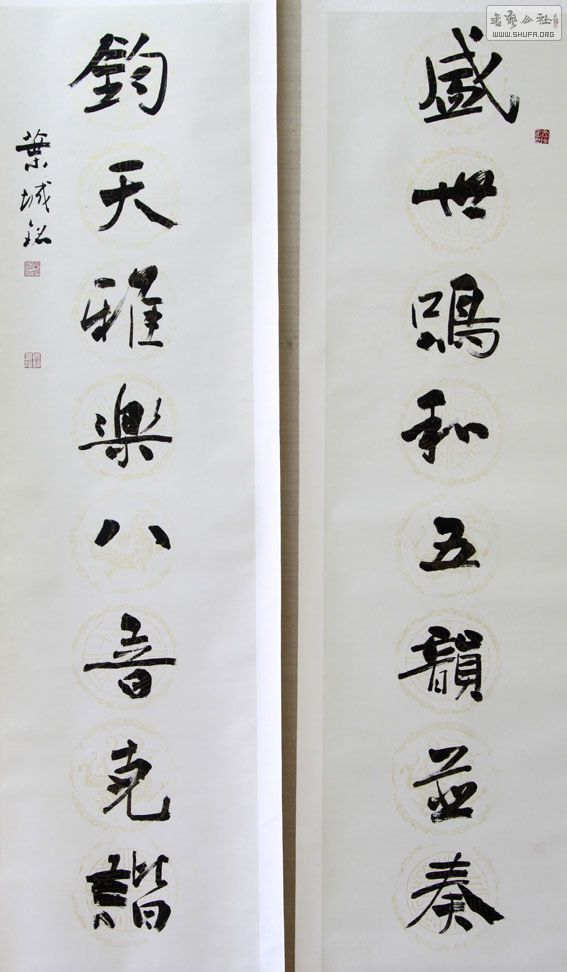 盛世鳴和五韻並奏
鈞天雅樂八音克諧
葉城銘
書藝公社
WWW.SHUFA.ORG